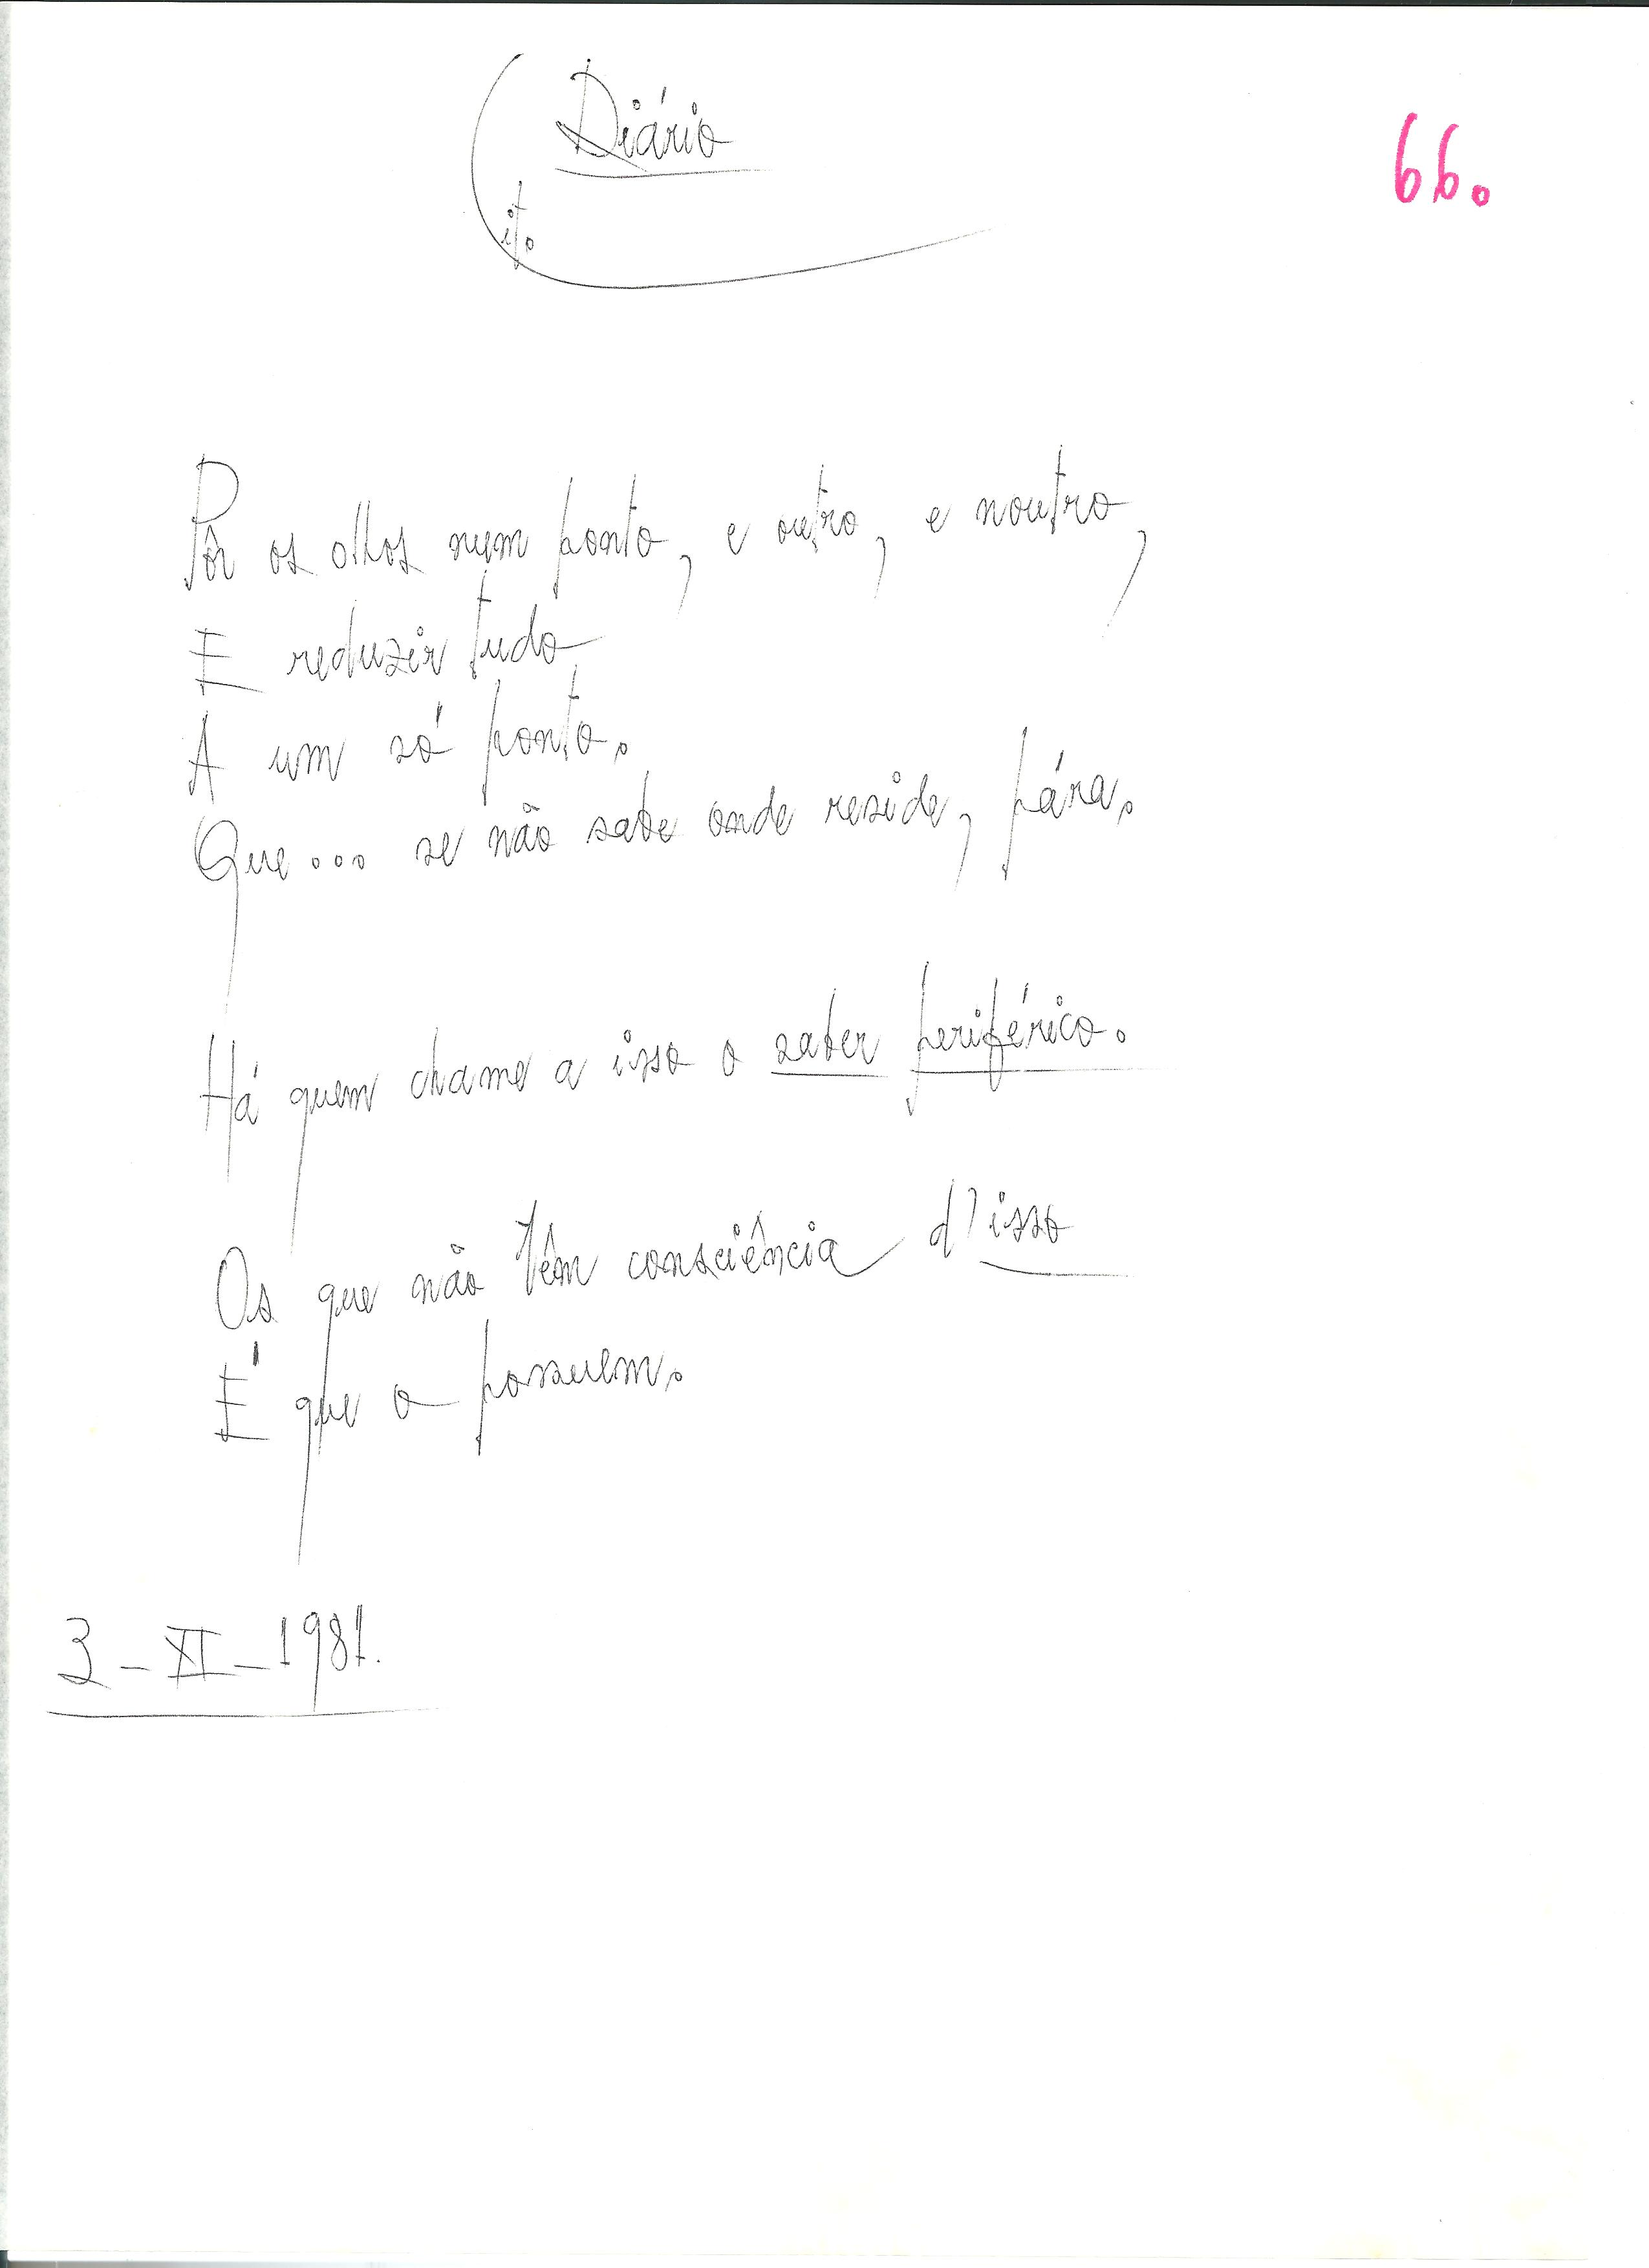 Diário
66.
Pôr os olhos num ponto, e outro, e noutro,
E reduzir tudo
A um só ponto.
Que... se não sabe onde reside, pára.
Há quem chame a isso o saber periférico.
Os que não têm consciência d'isso
É que o possuem.
3-XI-1981.